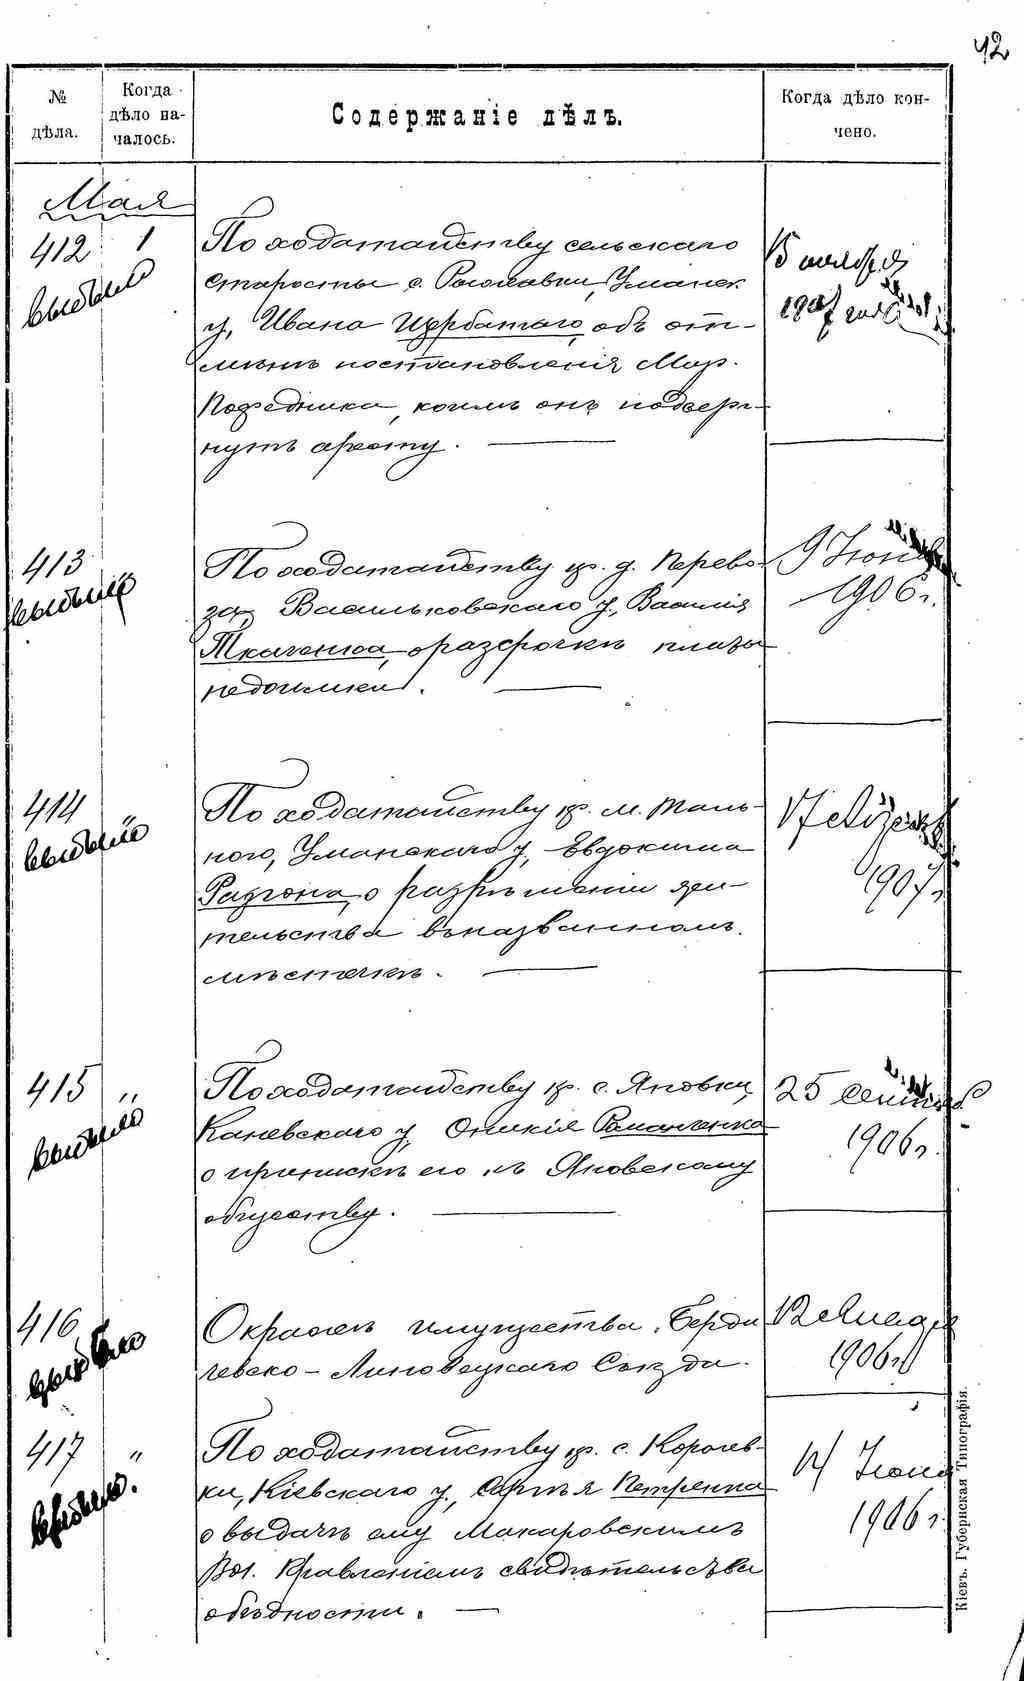 42
№ дѣла.
Когда дѣло началось.
Содержаніе дѣлъ.
Когда дѣло кончено.
Мая
412 1 выбыло
По ходатайству сельскаго
старосты с. Уманск.
у, Ивана Щербатаго, объ от-
мѣнѣ постановленія Мир.
Посредника, коимъ онъ подверг-
нутъ аресту.
15 ноября
1907 года
413 " выбыло
По ходатайству кр. д. Перево-
за, Васильковскаго у, Василія
Ткаченка, о разсрочкѣ платы
недоимки.
9 Іюня
1906 г.
414 " выбыло
По ходатайству кр. м. Таль-
ного, Уманскаго у, Евдокима
о разрѣшеніи жи-
тельства въ названномъ
мѣстечкѣ.
17
1907 г.
415 " выбыло
По ходатайству кр. с. Яновки,
Каневскаго у, Романенка
о припискѣ его къ Яновскому
обществу.
25 сентяб.
1906 г.
416 выбыло
О кражѣ имущества Берди
чевско-Липовецкаго Съѣзда.
12
1906 г.
417 " выбыло.
По ходатайству кр. с. Королев-
ки, Кіевскаго у, Сергѣя Петренка
о выдачѣ ему Макаровскимъ
Вол. Правленіемъ свидѣтельства
о бѣдности.
Іюня
1906 г.
Кіевъ. Губернская Типографія.